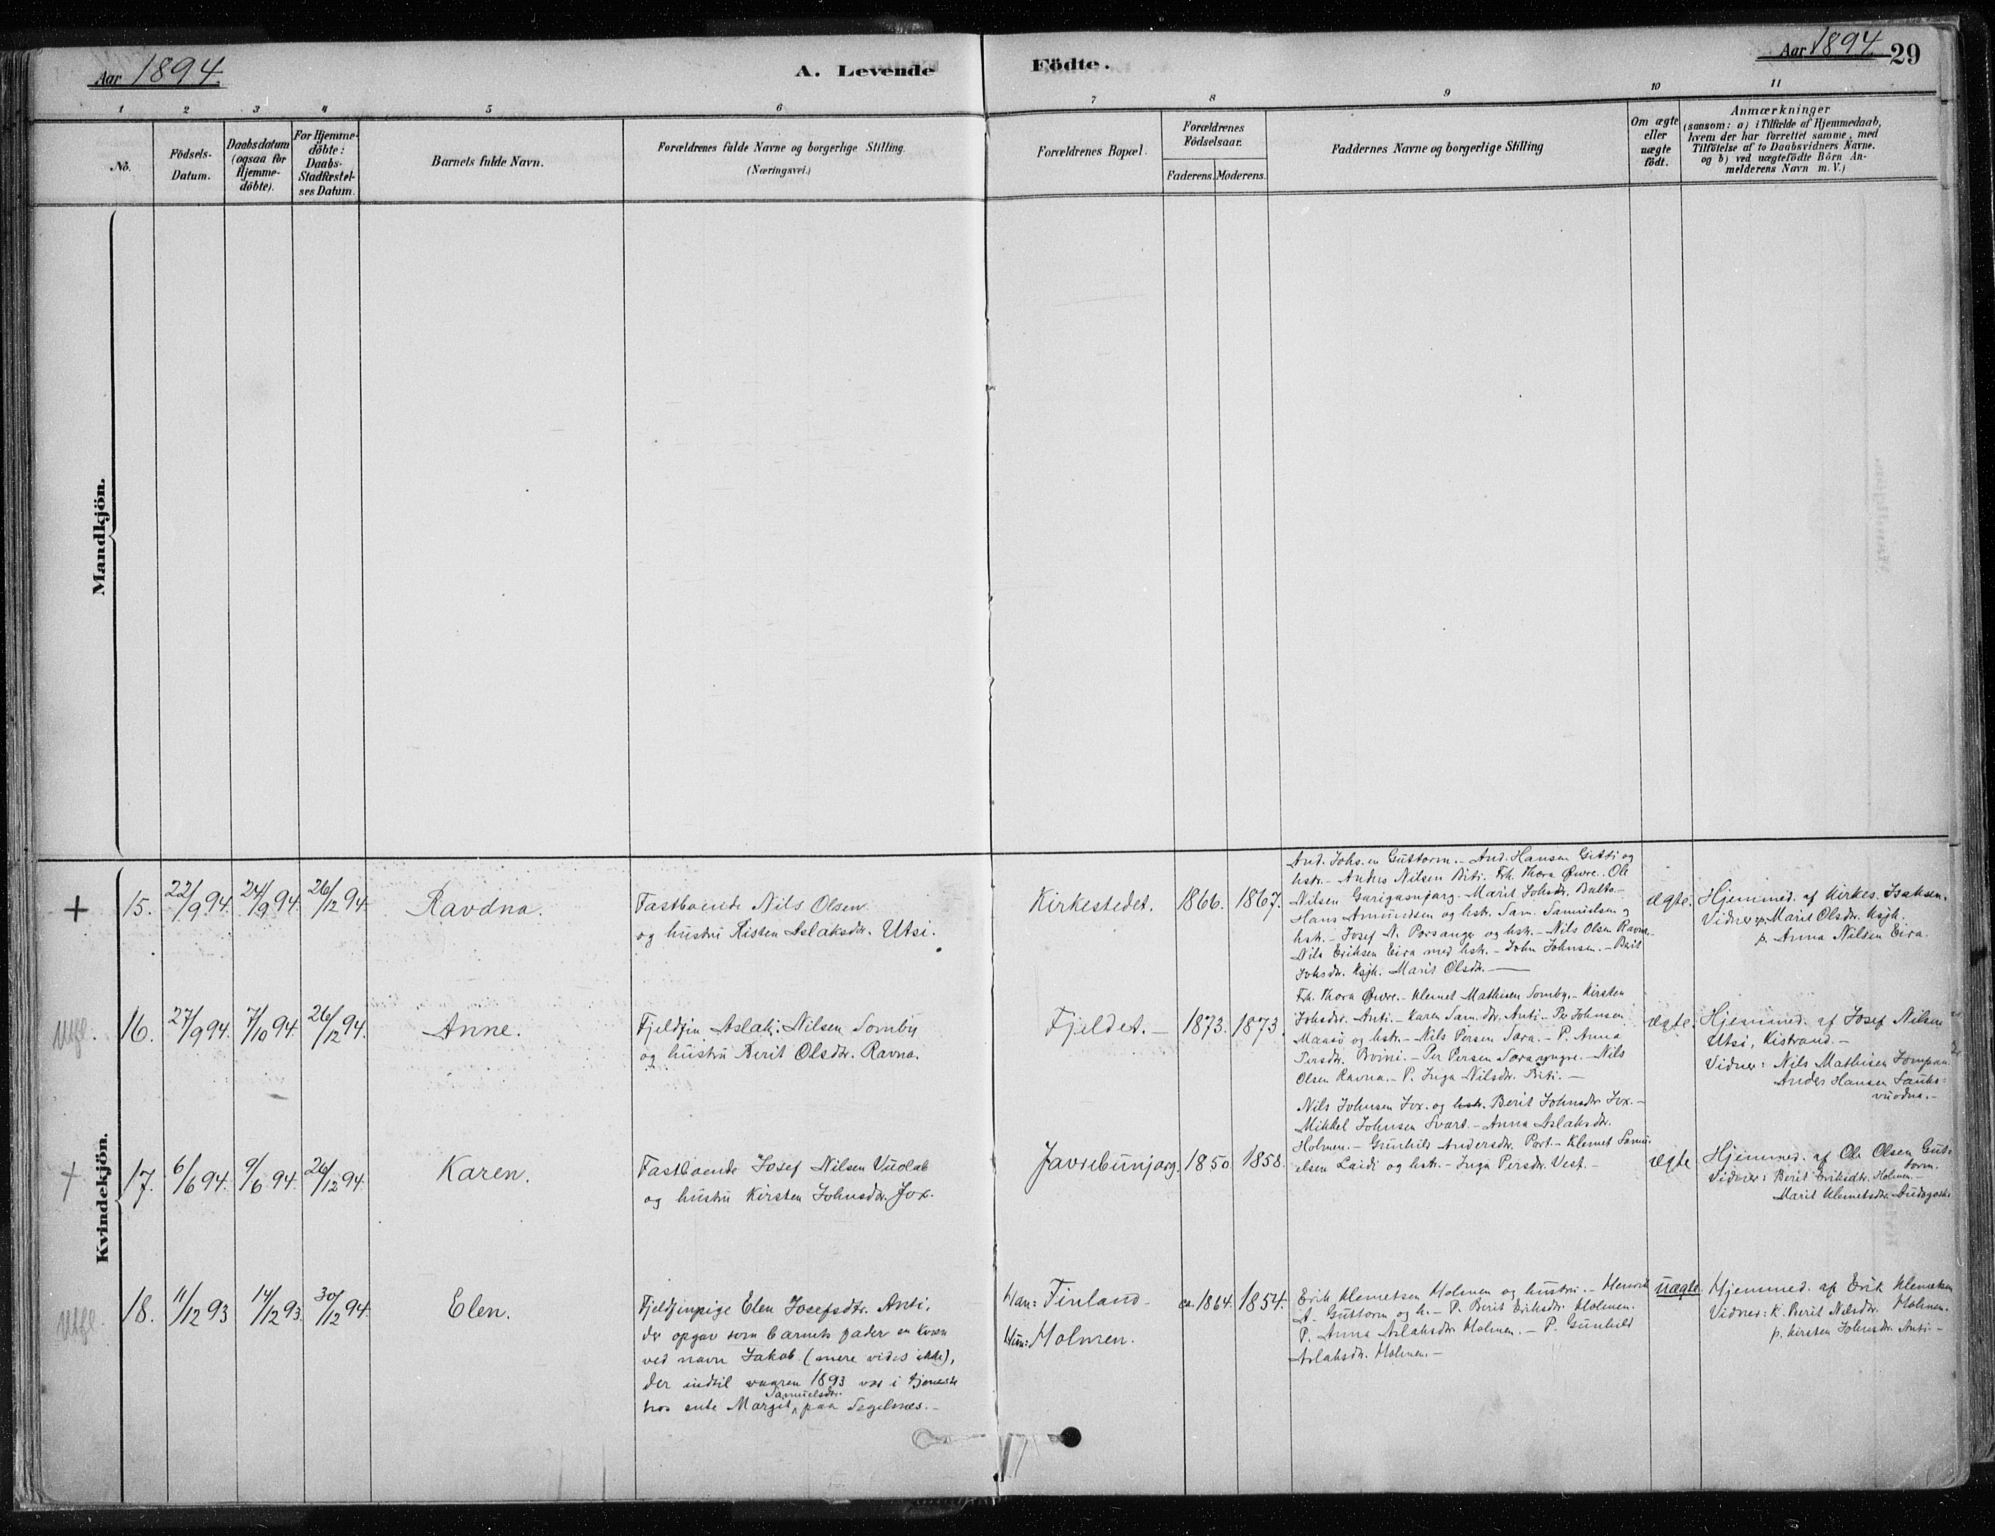 Aar 1894.
A. Levende Födte.
Aar 1894. 29
1 2 3 4 5 6 7 8 9 10 11
Nô.
Födsels-
Datum.
Daabsdatum
(ogsaa for
Hjemme-
döbte).
For Hjemme-
döbte:
Daabs-
Stadfæstel-
ses Datum.
Barnets fulde Navn.
Forældrenes fulde Navne og borgerlige Stilling.
(Næringsvei.)
Forældrenes Bopæl.
Forældrenes
Födselsaar.
Faderens. Moderens.
Faddernes Navne og borgerlige Stilling
Om ægte
eller
uægte
födt.
Anmærkninger
(saasom: a) i Tilfælde af Hjemmedaab,
hvem der har forrettet samme, med
Tilföielse af to Daabsvidners Navne,
og b) ved uægtefödte Börn An-
melderens Navn m. V.)
Mandkjön.
Kvindekjön.
+ 15. 22/9 94. 24/9 94. 26/12 94.
Ravdna.
Fastboende Nils Olsen
og hustru Risten Aslaksdr. Utsi.
Kirkestedet. 1866. 1867.
And. Johs.en Guttorm. – And. Hansen Gitti og
hstr. – Anders Nilsen Biti. Frk. Thora Øwre. Ole
Nilsen Garigasnjarg. – Marit Johsdr. Balto –
Hans Amundsen og hstr. Sam. Samuelsen og
hstr. – Josef N. Porsanger og hstr. – Nils Olsen Ravna.
Nils Eriksen Eira med hstr. – John Johnsen. – Berit
Johsdr. Ksjh. Marit Olsdr. –
ægte.
Hjemmed. af Kirkes. Isaksen.
Vidner: p. Marit Olsdr. Ksjh.
p. Anna Nilsen Eira.
16. 27/9 94. 7/10 94. 26/12 94.
Anne.
Fjeldfin Aslak Nilsen Somby
og hustru Berit Olsdr. Ravna.
Fjeldet. – 1873. 1873.
Frk. Thora Øwre. – Klemet Mathisen Somby. – Kirsten
Johsdr. Anti. – Karen Sam.dr. Anti – Per Johnsen
Maasø og hstr. – Nils Persen Sara. – P. Anna
Persdr. – Per Persen Sara yngre. – Nils
Olsen Ravna. – P. Inga Nilsdr. Biti. –
ægte.
Hjemmed. af Josef Nilsen
Utsi, Kistrand. –
Vidner: Nils Mathisen
Anders Hansen
vuodna. –
+ 17. 6/6 94. 9/6 94. 26/12 94.
Karen.
Fastboende Josef Nilsen Vuolab
og hustru Kirsten Johnsdr. Jox.
Javrebunjarg. 1850. 1858.
Nils Johnsen Jox. og hstr. Berit Johnsdr. Jox. –
Mikkel Johnsen Svart. – Anna Aslaksdr.
Holmen. – Gunhild Andersdr. Port. – Klemet Samu-
elsen Laidi og hstr. – Inga Persdr. Vest. –
ægte
Hjemmed. af Ole Olsen Gut-
torm.
Vidner: Berit Eriksdr. Holmen. –
Marit Klemetsdr.
18. 11/12 93 14/12 93. 30/12 94.
Elen.
Fjeldfinpige Elen Josefsdtr. Anti,
der opgav som barnets fader en kvæn
ved navn Jakob (mere vides ikke),
der indtil vaaren 1893 var i tjeneste
hos enke Margit Samuelsdr. paa Segelnes. –
Han: Finland –
Hun: Holmen.
ca. 1864. 1854.
Erik Klemetsen Holmen og hustru. – Henrik
A. Guttorm og h. – P. Berit Eriksdr. Holmen.
P. Anna Aslaksdr. Holmen. – P. Gunhild
Aslaksdr. Holmen. –
uægte
Hjemmed. af Erik Klemetsen
Holmen.
Vidner: K. Berit Nilsdr.
p. Kirsten Johnsdr. Anti –